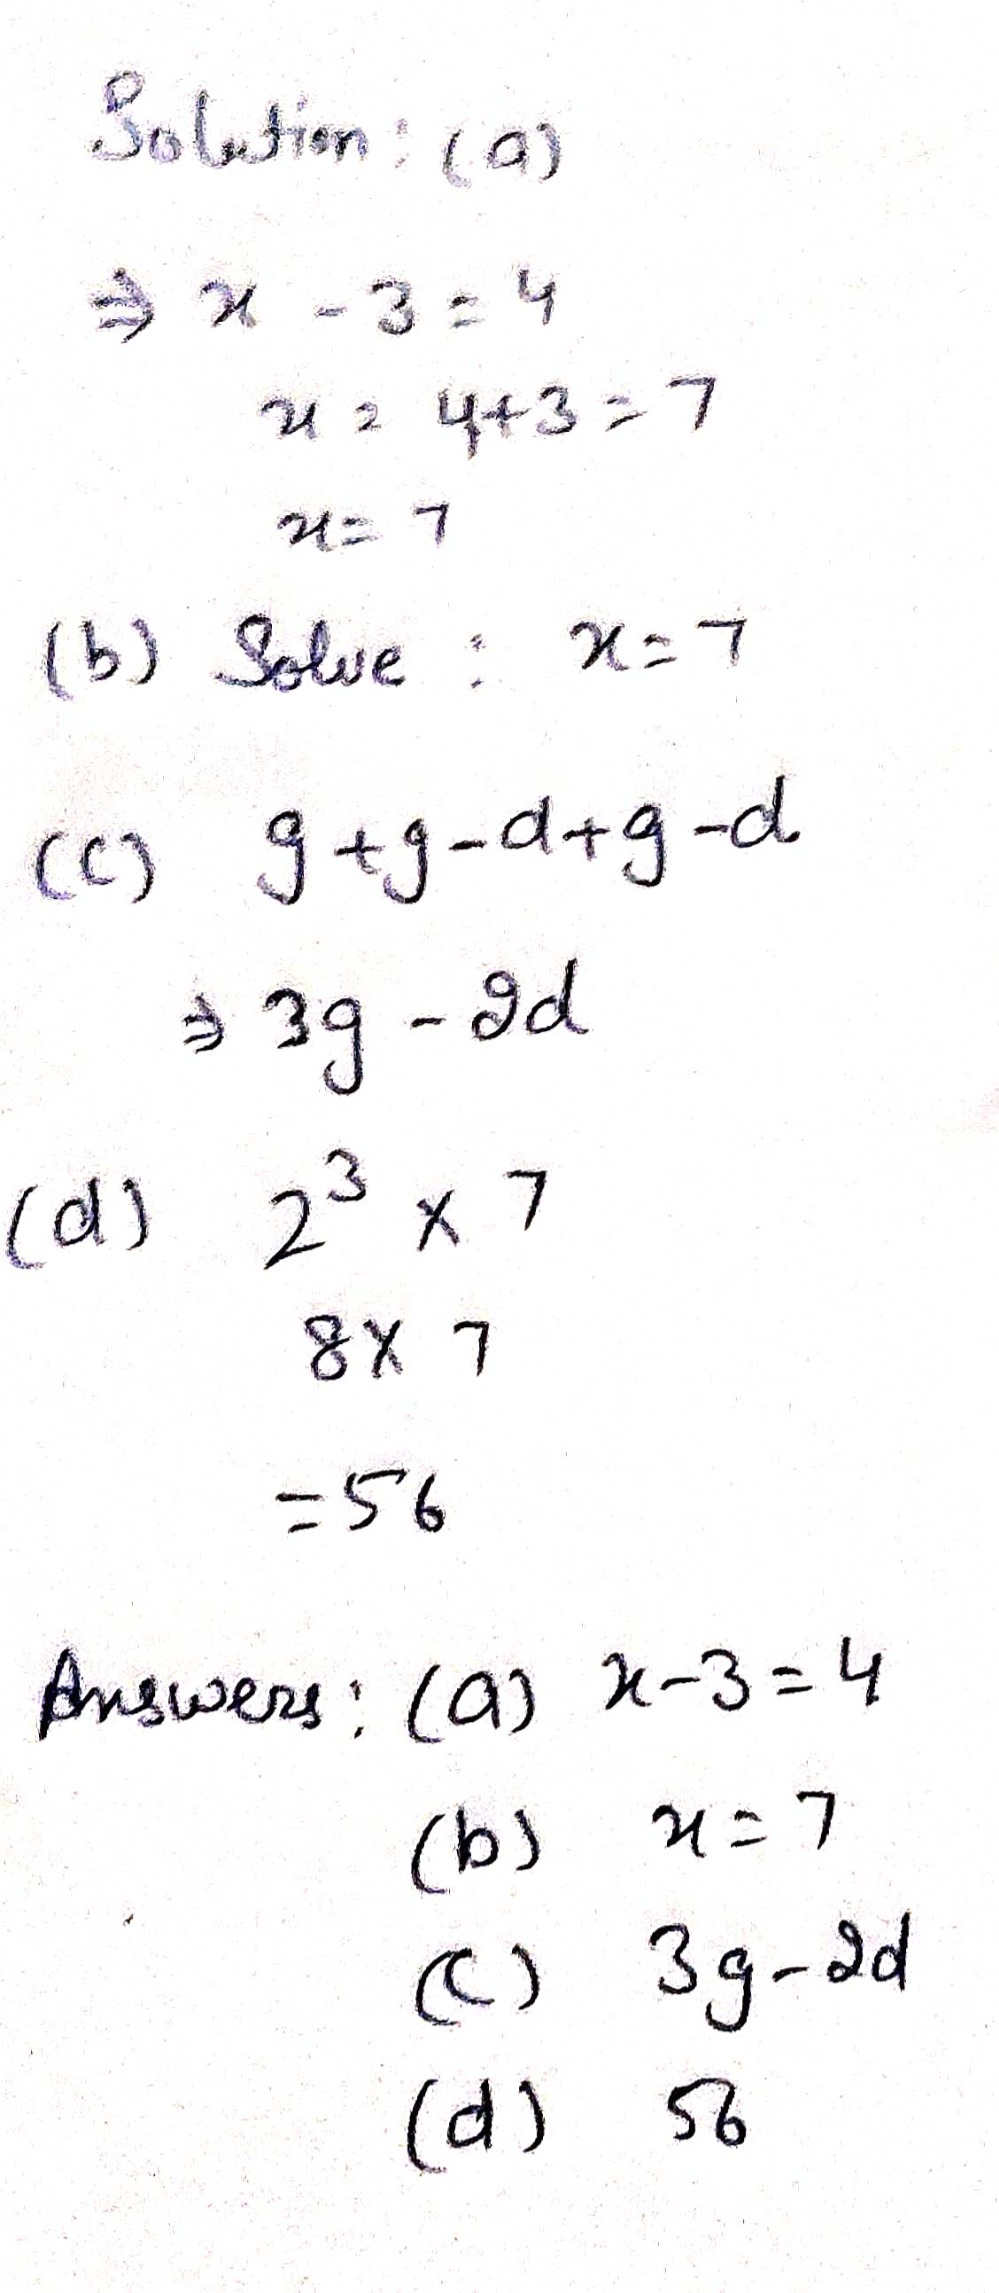 Solution: (a)
⇒ x - 3 = 4
x = 4+3 = 7
x = 7
(b) Solve : x = 7
(c) g + g - d + g - d
⇒ 3g - 2d
(d) 2³ × 7
8 × 7
= 56
Answers: (a) x - 3 = 4
(b) x = 7
(c) 3g - 2d
(d) 56